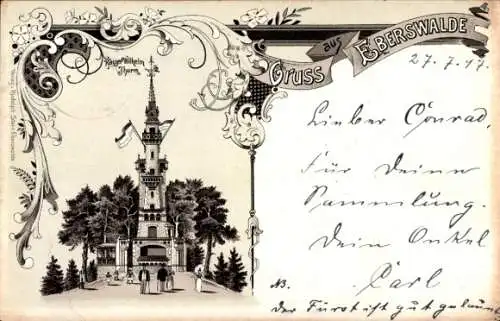 Gruss aus Eberswalde
27. 7. 17.
Kaiser Wilhelm
Thurm
Lieber Conrad,
Für Deine
Sammlung.
Dein Onkel
Carl
NB.
der Fürst ist gut gelaunt